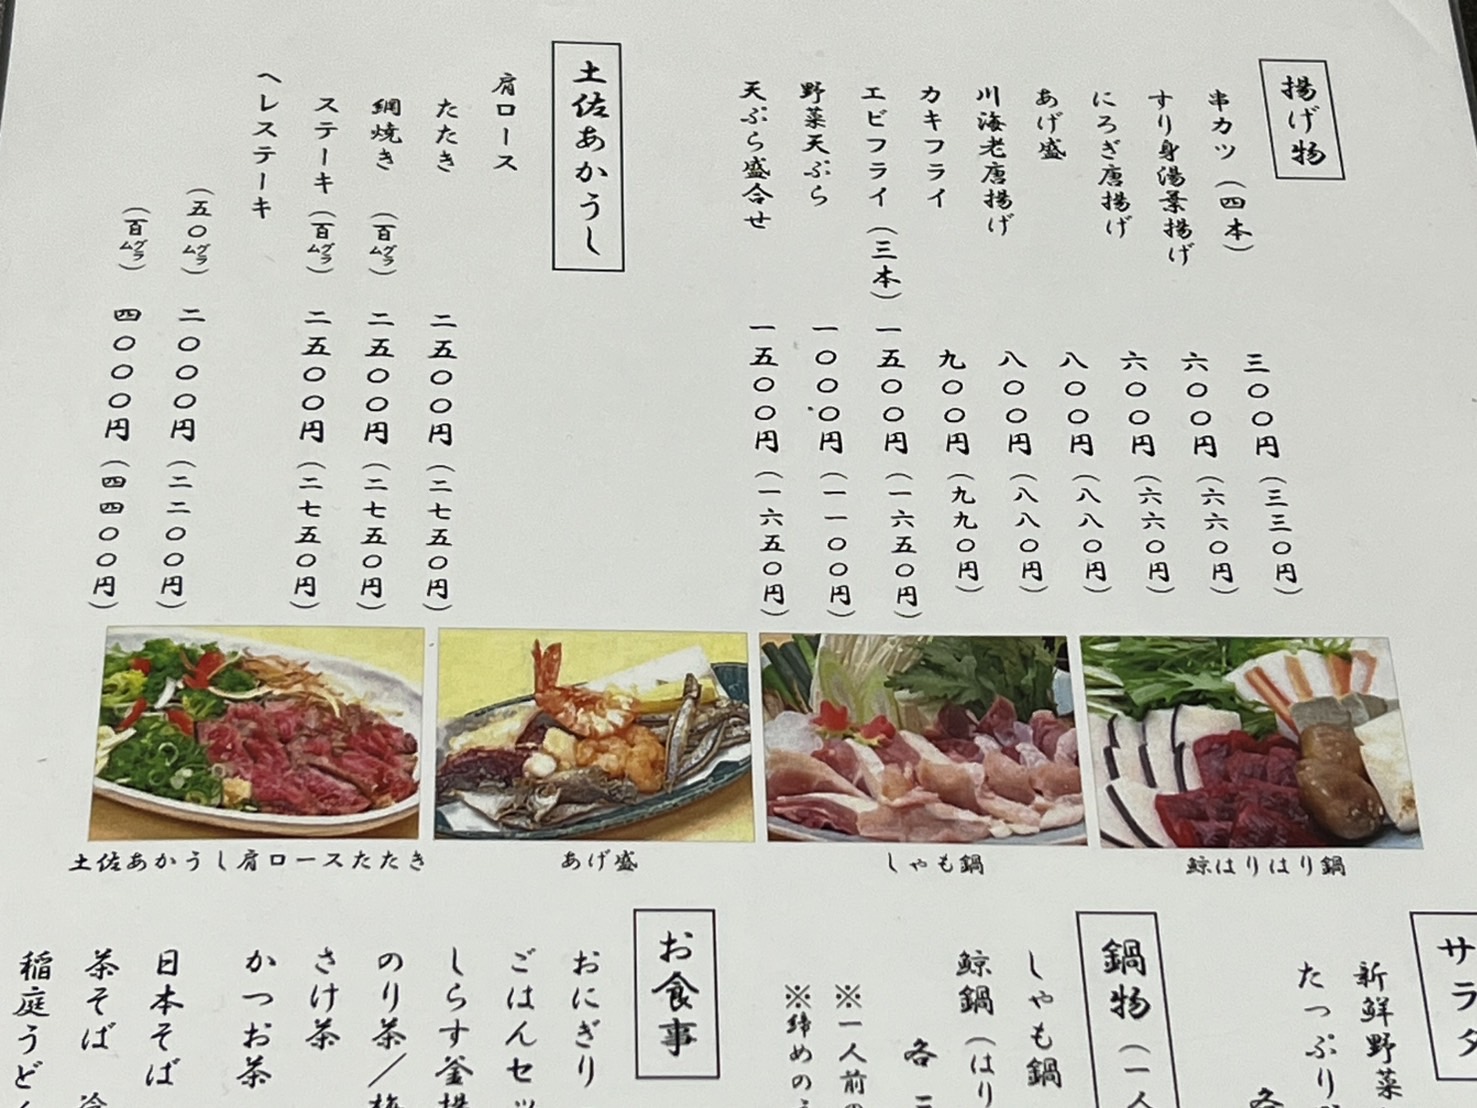 揚げ物
串カツ（四本） 三〇〇円（三三〇円）
すり身湯葉揚げ 六〇〇円（六六〇円）
にろぎ唐揚げ 六〇〇円（六六〇円）
あげ盛 八〇〇円（八八〇円）
川海老唐揚げ 八〇〇円（八八〇円）
カキフライ 九〇〇円（九九〇円）
エビフライ（三本） 一五〇〇円（一六五〇円）
野菜天ぷら 一〇〇〇円（一一〇〇円）
天ぷら盛合せ 一五〇〇円（一六五〇円）
土佐あかうし
肩ロース
たたき 二五〇〇円（二七五〇円）
網焼き（百グラム） 二五〇〇円（二七五〇円）
ステーキ（百グラム） 二五〇〇円（二七五〇円）
ヘレステーキ
（五〇グラム） 二〇〇〇円（二二〇〇円）
（百グラム） 四〇〇〇円（四四〇〇円）
土佐あかうし肩ロースたたき
あげ盛
しゃも鍋
鯨はりはり鍋
サラダ
新鮮野菜
たっぷり
各
鍋物（一人
しゃも鍋
鯨鍋（はり
各三
※一人前の
※締めのう
お食事
おにぎり
ごはんセッ
しらす釜揚
のり茶／梅
さけ茶
かつお茶
日本そば
茶そば 冷
稲庭うどん